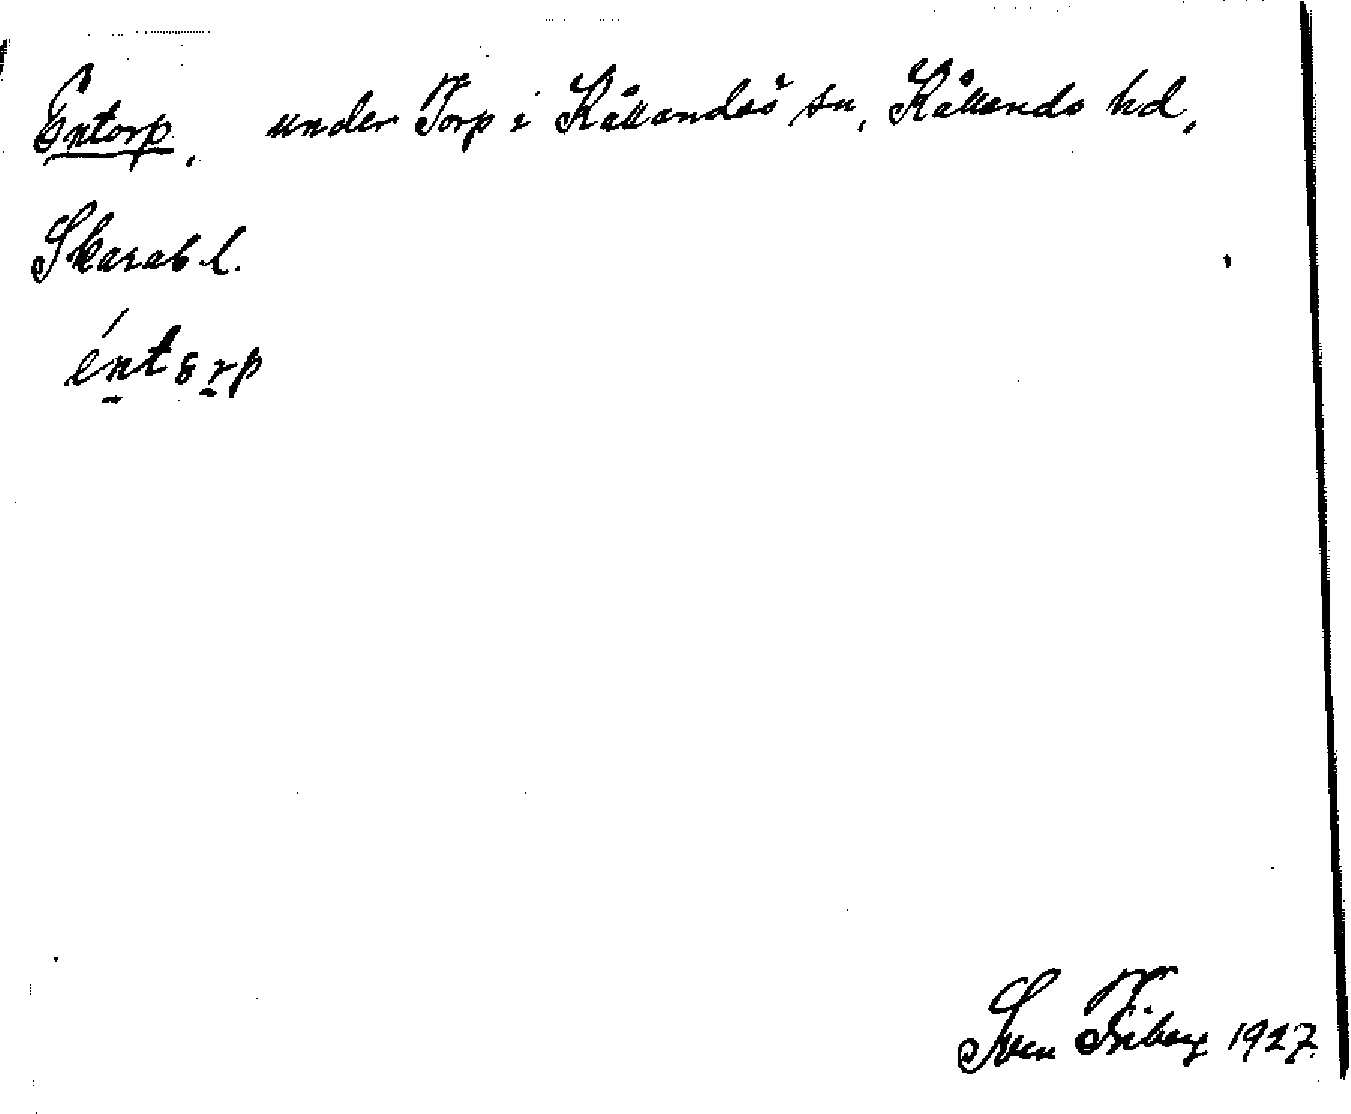 Entorp, under Torp i Kållandsö sn, Kållands hd,
Skarab. l.
éntorp
Sven Friberg 1927.